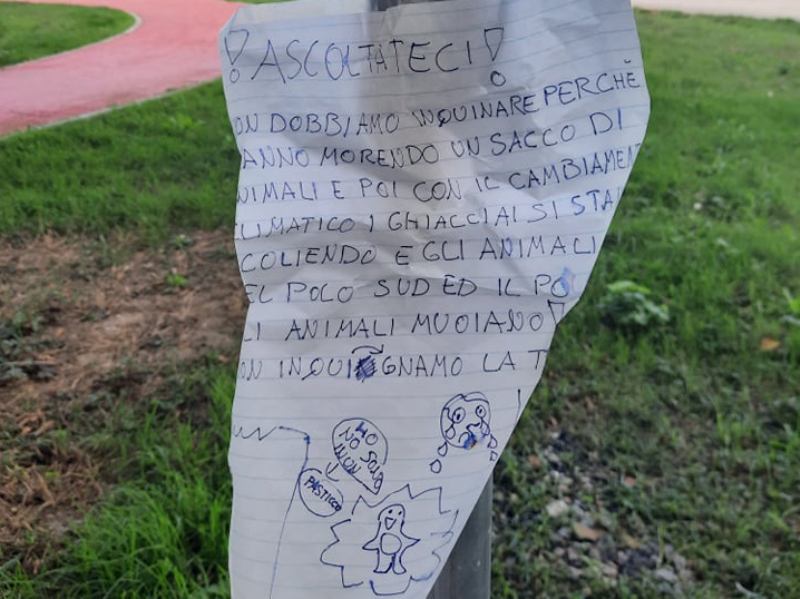 !ASCOLTATECI!
ON DOBBIAMO INQUINARE PERCHÈ
ANNO MORENDO UN SACCO DI
NIMALI E POI CON IL CAMBIAMEN
LIMATICO I GHIACCIAI SI STA
COLIENDO E GLI ANIMALI
EL POLO SUD ED IL PO
LI ANIMALI MUOIANO!
ON INQUI GNAMO LA T
NO SONO
PASTICCO